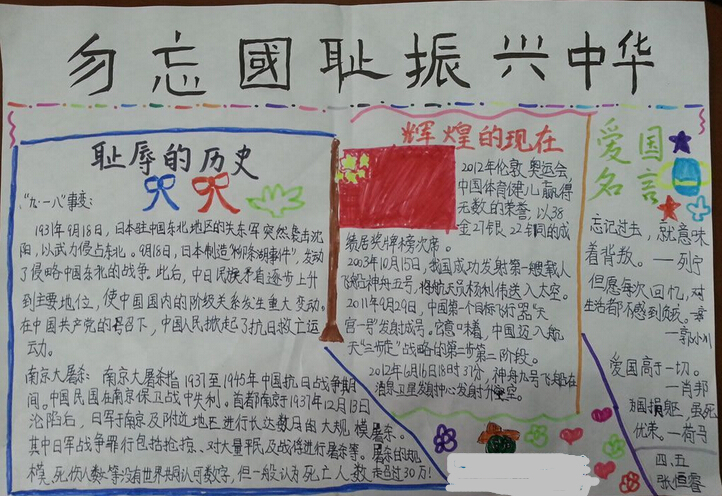 勿忘國耻振兴中华
耻辱的历史
"九·一八"事变:
1931年9月18日,日本驻中国东北地区的关东军突然袭击沈
阳,以武力侵占东北。9月18日,日本制造"柳条湖事件",发动
了侵略中国东北的战争。此后,中日民族矛盾逐步上升
到主要地位,使中国国内的阶级关系发生重大变动。
在中国共产党的号召下,中国人民掀起了抗日救亡运
动。
南京大屠杀:南京大屠杀指1937至1945年中国抗日战争期
间。中国民国在南京保卫战中失利。首都南京于1937年12月13日
沦陷后,日军于南京及附近地区进行长达数月的大规模屠杀。
其中日军战争罪行包括抢掠、对大量平民及战俘进行屠杀等。屠杀的规
模、死伤人数等没有世界共同认可数字,但一般认为死亡人数走超过30万!
辉煌的现在
2012年伦敦奥运会,
中国体育健儿赢得
无数的荣誉,以38
金27银22铜的成
绩居奖牌榜次席。
2003年10月15日,我国成功发射第一艘载人
飞船神舟五号,将航天员杨利伟送入太空。
2011年9月29日,中国第一个目标飞行器"天
宫一号"发射成号。它意味着,中国迈入航
天"三步走"战略的第二步第二阶段。
2012年6月16日18时37分,神舟九号飞船在
酒泉卫星发射中心发射升空。
爱国
名言
忘记过去,就意味
着背叛。——列宁
但愿每次回忆,对
生活都不感到负疚。
——郭小川
爱国高于一切。
——肖邦
为国捐躯,虽死
犹荣。——荷马
四、五
张恒睿